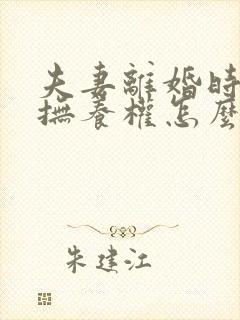 夫妻離婚時
撫養權怎麼
朱建江